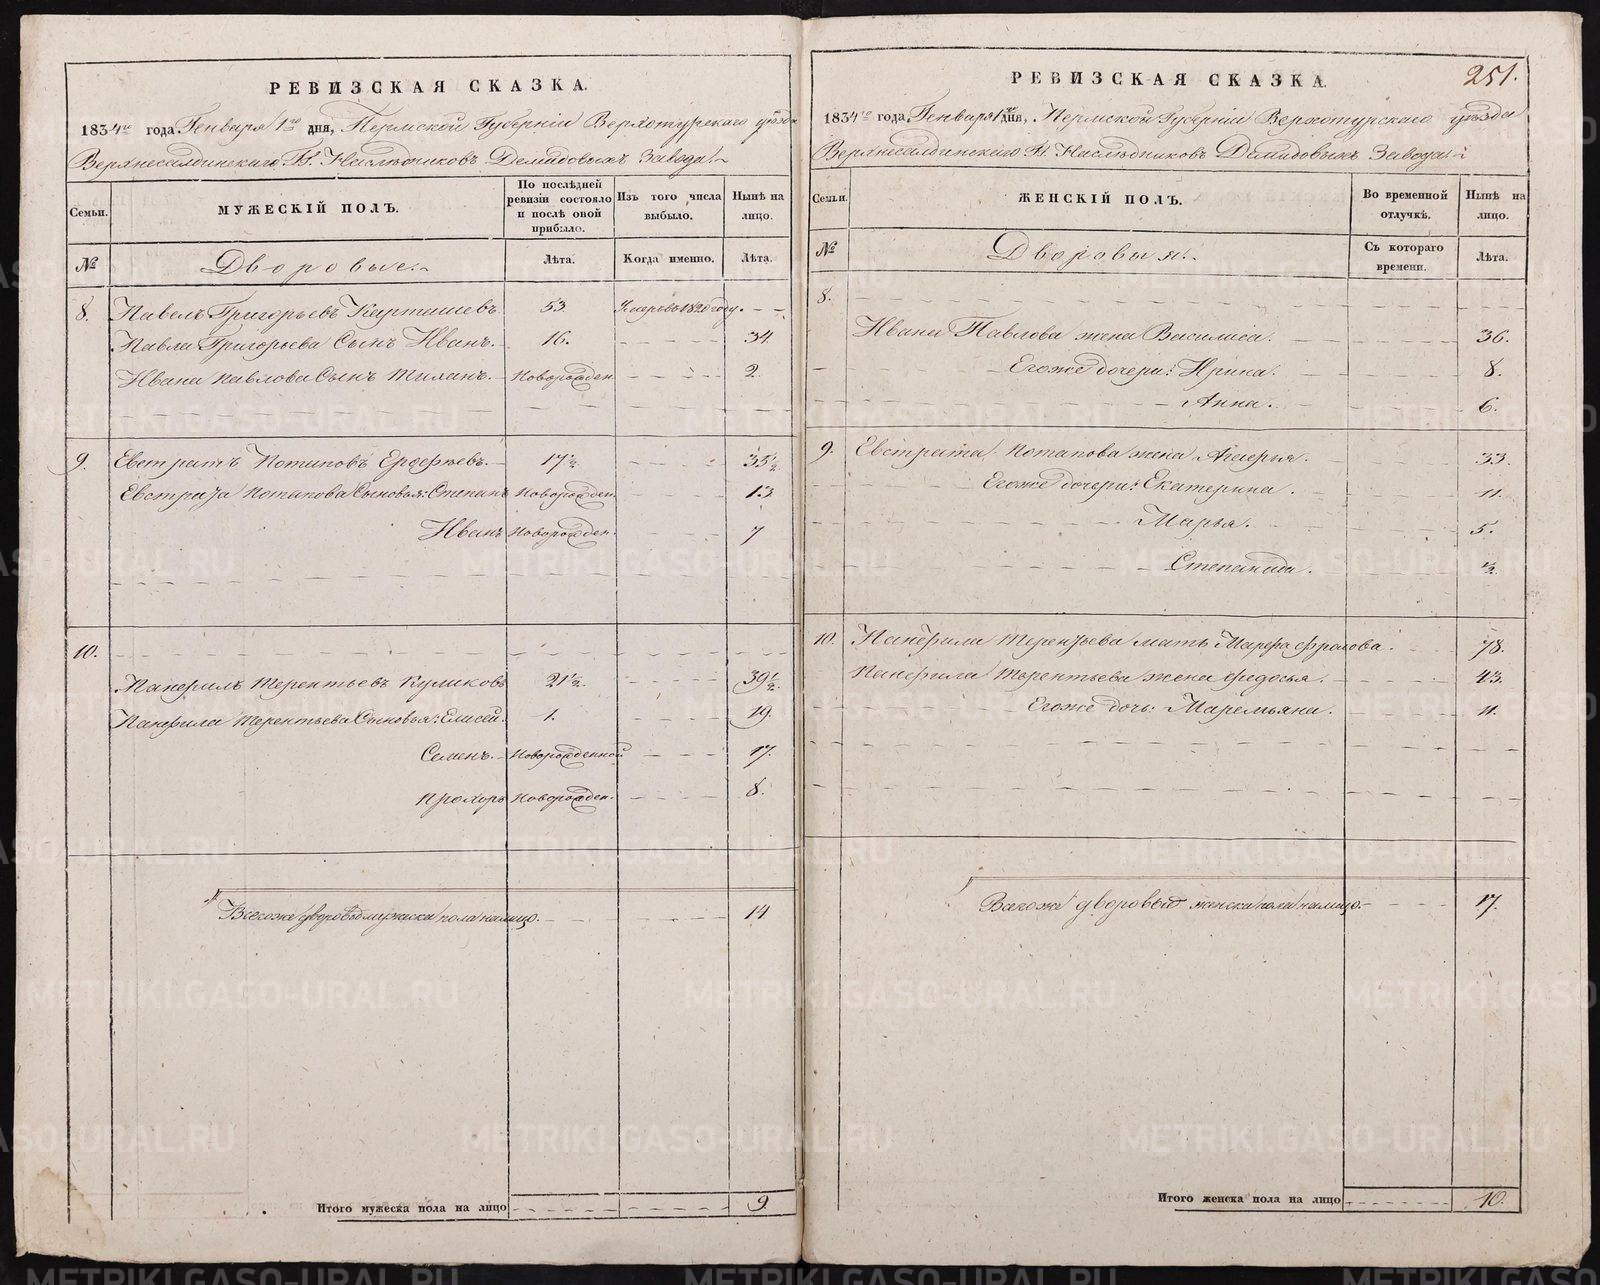 РЕВИЗСКАЯ СКАЗКА.
1834го года Генваря 1го дня, Пермской Губерніи Верхотурскаго уѣзда
Верхнесалдинскаго Гг. Наслѣдниковъ Демидовыхъ Завода
Семьи. МУЖЕСКІЙ ПОЛЪ. По послѣдней ревизіи состояло и послѣ оной прибыло. Изъ того числа выбыло. Нынѣ на лицо.
№ Дворовые. Лѣта. Когда именно. Лѣта.
8. Павелъ Григорьевъ 53. Умеръ въ 1820 году.
Павла Григорьева Сынъ Иванъ. 16. 34
Ивана Павлова Сынъ новорожден. 2.
9. Евстратъ Потаповъ 17½ 35½
Евстрата Потапова Сыновья: Степанъ новорожден. 13
Иванъ новорожден. 7
10.
Панфилъ Терентьевъ Куликовъ 21½. 39½
Панфила Терентьева Сыновья: Елисей. 1. 19.
Семенъ. новорожденной 17.
Прохоръ новорожден. 8.
Всегоже дворовыхъ мужеска пола налицо. 14
Итого мужеска пола на лицо 9.
251.
РЕВИЗСКАЯ СКАЗКА.
1834го года, Генваря 1го дня, Пермской Губерніи Верхотурскаго уѣзда
Верхнесалдинскаго Гг. Наслѣдниковъ Демидовыхъ Завода
Семьи. ЖЕНСКІЙ ПОЛЪ. Во временной отлучкѣ. Нынѣ на лицо.
№ Дворовыя. Съ котораго времени. Лѣта.
8.
Ивана Павлова жена Василиса. 36.
Егоже дочери: Ирина. 8.
Анна. 6.
9. Евстрата Потапова жена 33.
Егоже дочери: Екатерина. 11.
Марья. 5.
Степанида. ½.
10. Панфила Терентьева мать Марфа Фролова. 78.
Панфила Терентьева жена Федосья. 43.
Егоже дочь: Маремьяна. 11.
Всегоже дворовыхъ женска пола налицо. 17.
Итого женска пола на лицо 10.
METRIKI.GASO-URAL.RU